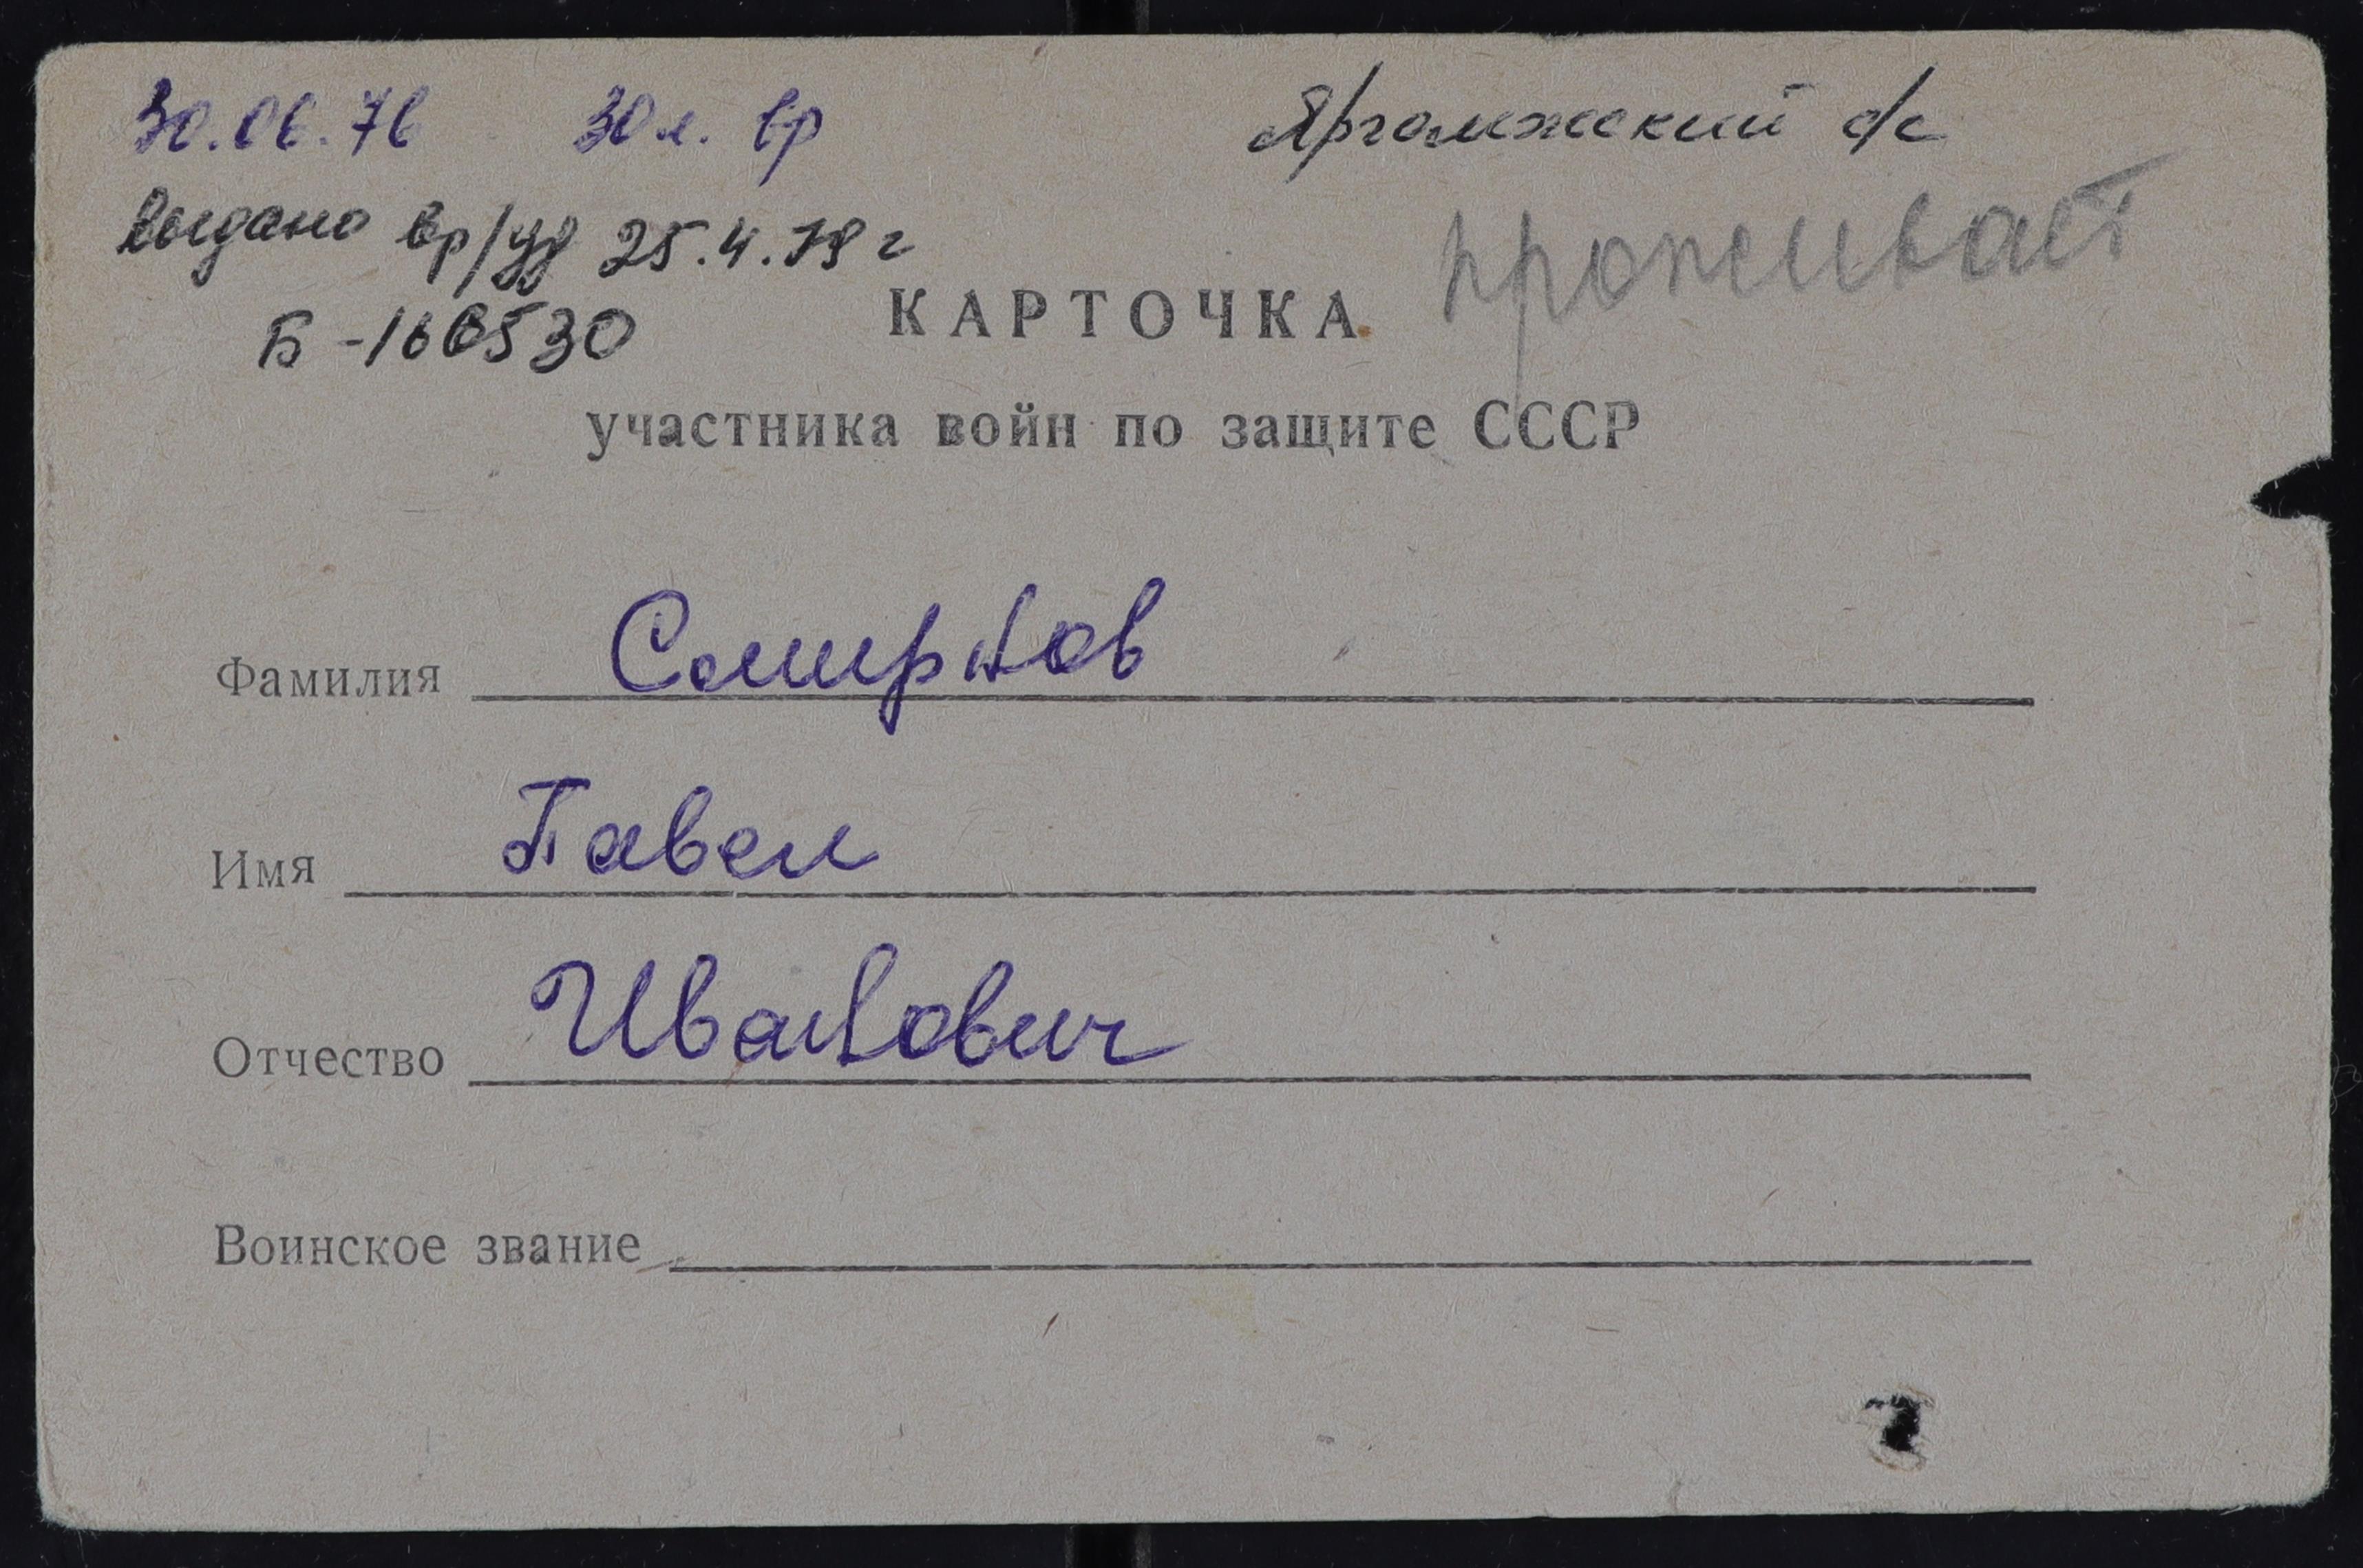 30.06.76 30 л. вр
Яргомжский с/с
выдано вр/уд 25.4.79 г
проживает
Б-166530
КАРТОЧКА
участника войн по защите СССР
Фамилия Смирнов
Имя Павел
Отчество Иванович
Воинское звание